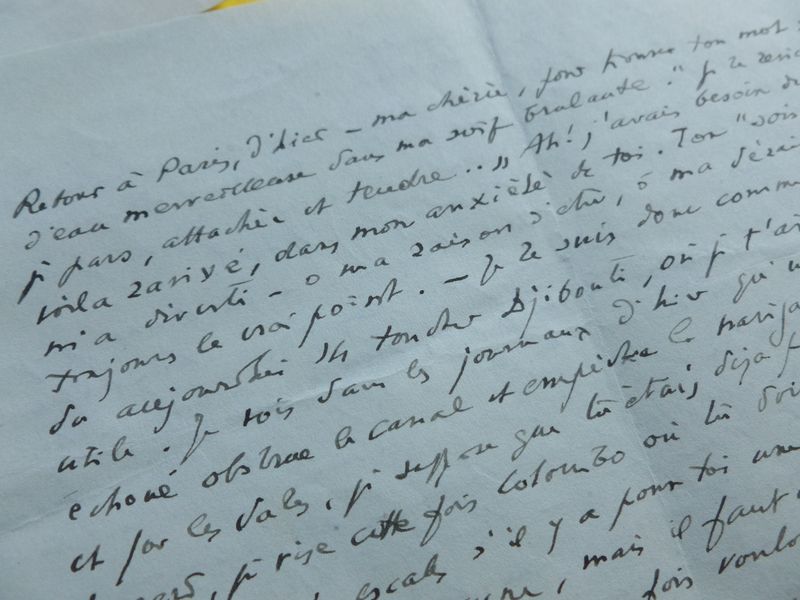 Retour à Paris, d'hier – ma chérie, pour trouver ton mot
d'eau merveilleuse dans ma soif brulante. " Je te
je pars, attachée et tendre.. » Ah! j'avais besoin de
voilà rarivé, dans mon anxiété de toi. Ton "sois
m'a diverti – ô ma raison d'être, ô ma
toujours le vrai point. – Je te suis donc comme
du aujourd'hui toucher Djibouti, où je t'ai
utile. Je vois dans les journaux d'hier qu'un
echoué obstrue le canal et empêche la naviga
et par les dates, je suppose que tu étais déja
je vise cette fois Colombo où tu dois
escales s'il y a pour toi une
mais il faut
fois voulo